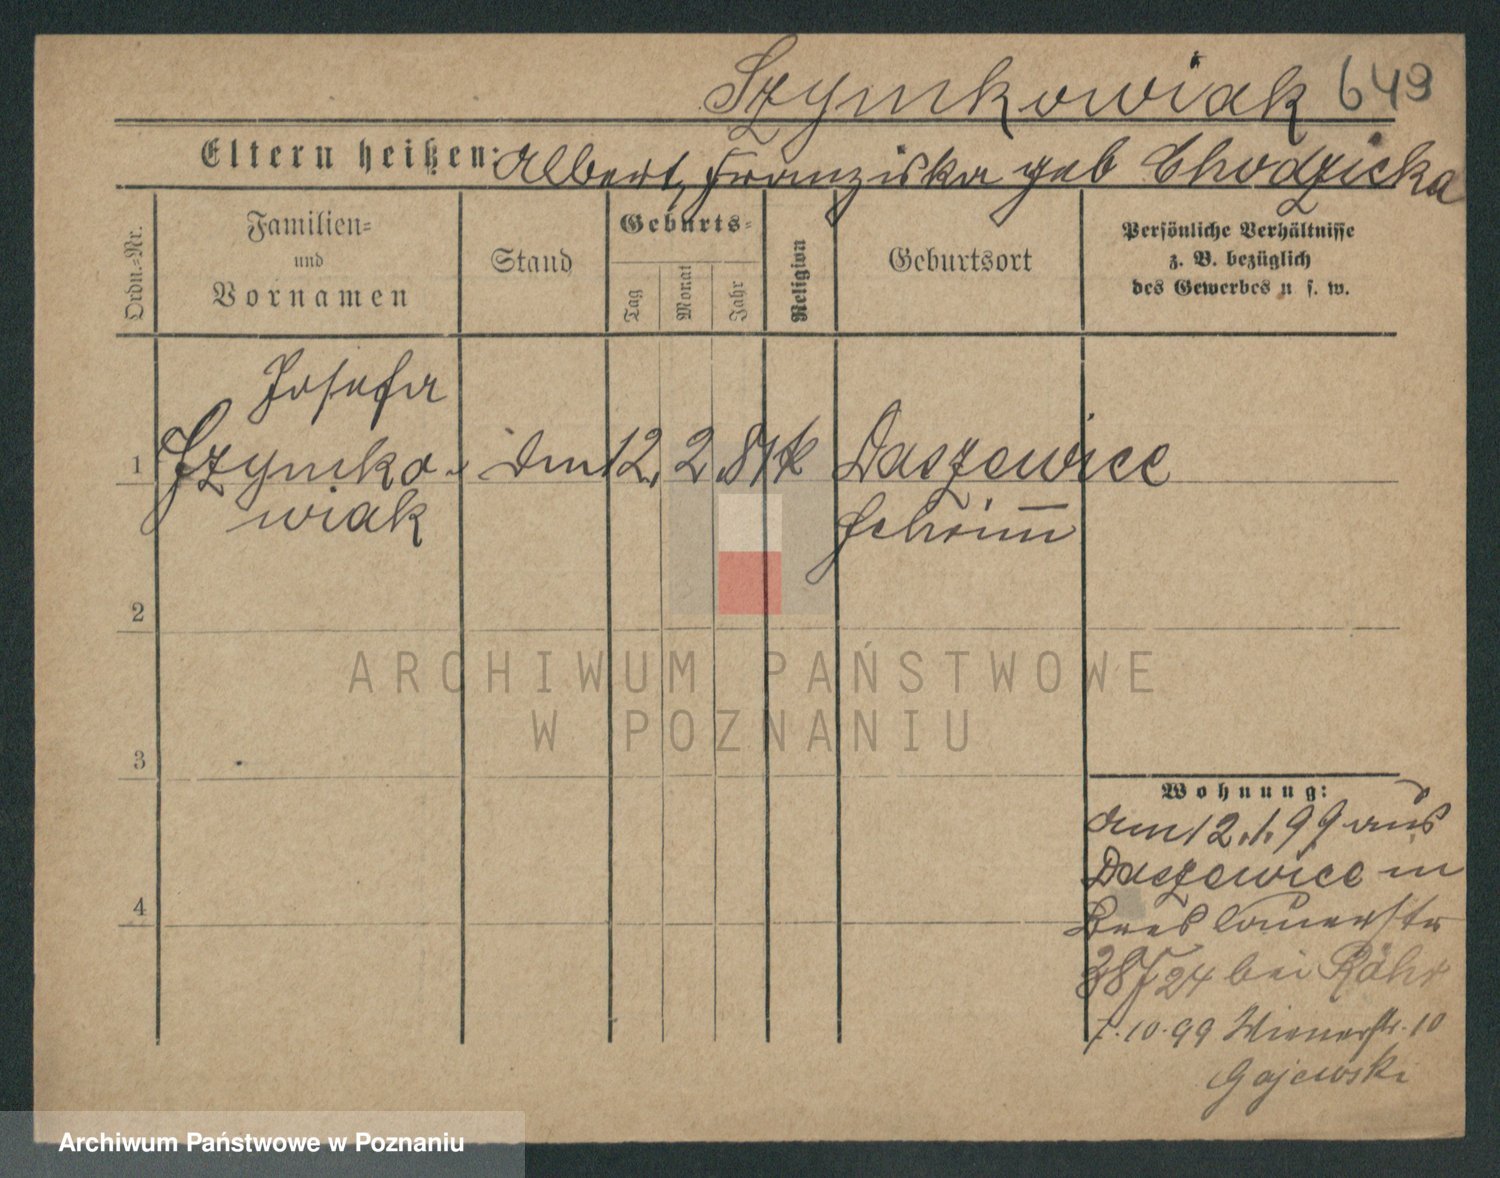 Szymkowiak 649
Eltern heißen: Albert, Franziska geb Chodzicka
Ordn.-Nr.
Familien-
und
Vornamen
Stand
Geburts-
Tag
Monat
Jahr
Religion
Geburtsort
Persönliche Verhältnisse
z. B. bezüglich
des Gewerbes u s. w.
Josefa
1 Szymko- dm 12. 2. 81 k Daszewice
wiak Schrim̅
2
3
4
ARCHIWUM PAŃSTWOWE
W POZNANIU
Wohnung:
dm 12.1.99 aus
Daszewice in
Breslauerstr
24 bei Röhr
7.10.99 Wienerstr. 10
Gajewski
Archiwum Państwowe w Poznaniu